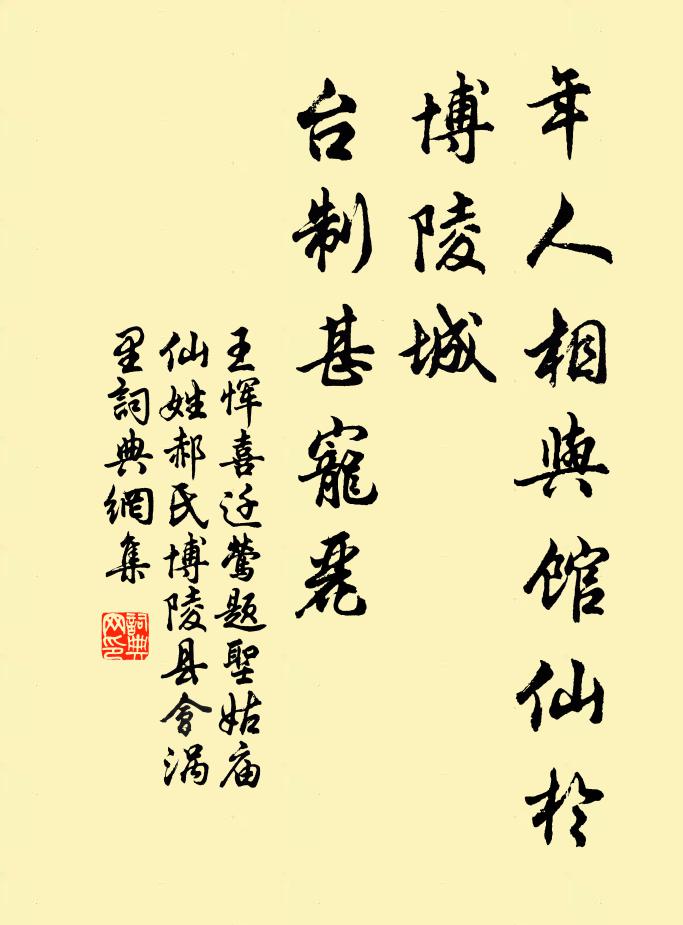 年人相與館仙於
博陵城
台制甚寵麗
王恽喜迁莺题聖姑庙
仙姓郝氏博陵县會渦
里詞典網集
詞典
网印